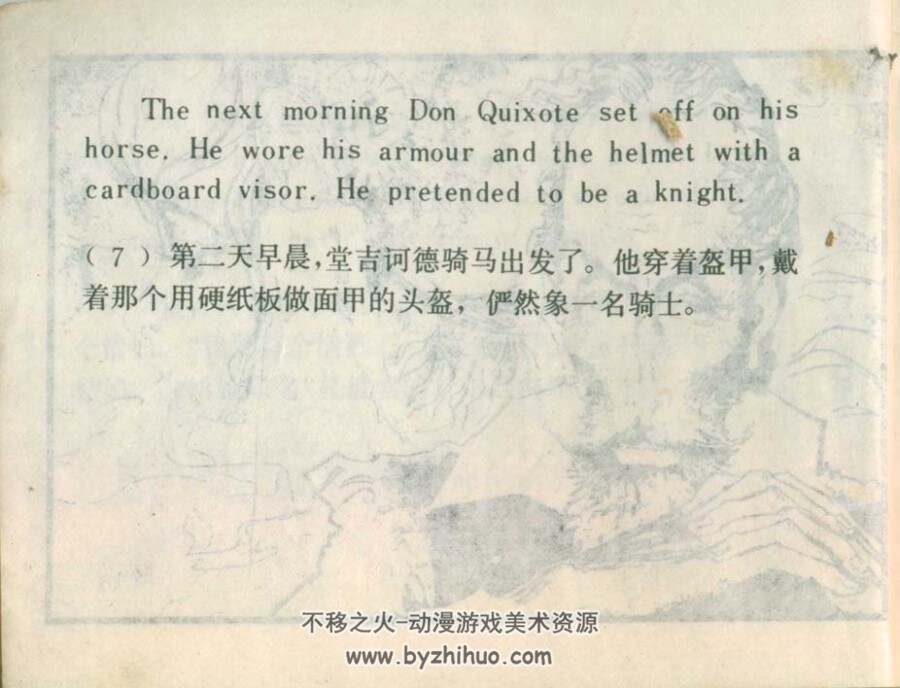 The next morning Don Quixote set off on his
horse. He wore his armour and the helmet with a
cardboard visor. He pretended to be a knight.
（7）第二天早晨，堂吉诃德骑马出发了。他穿着盔甲，戴
着那个用硬纸板做面甲的头盔，俨然象一名骑士。
不移之火-动漫游戏美术资源
www.byzhihuo.com